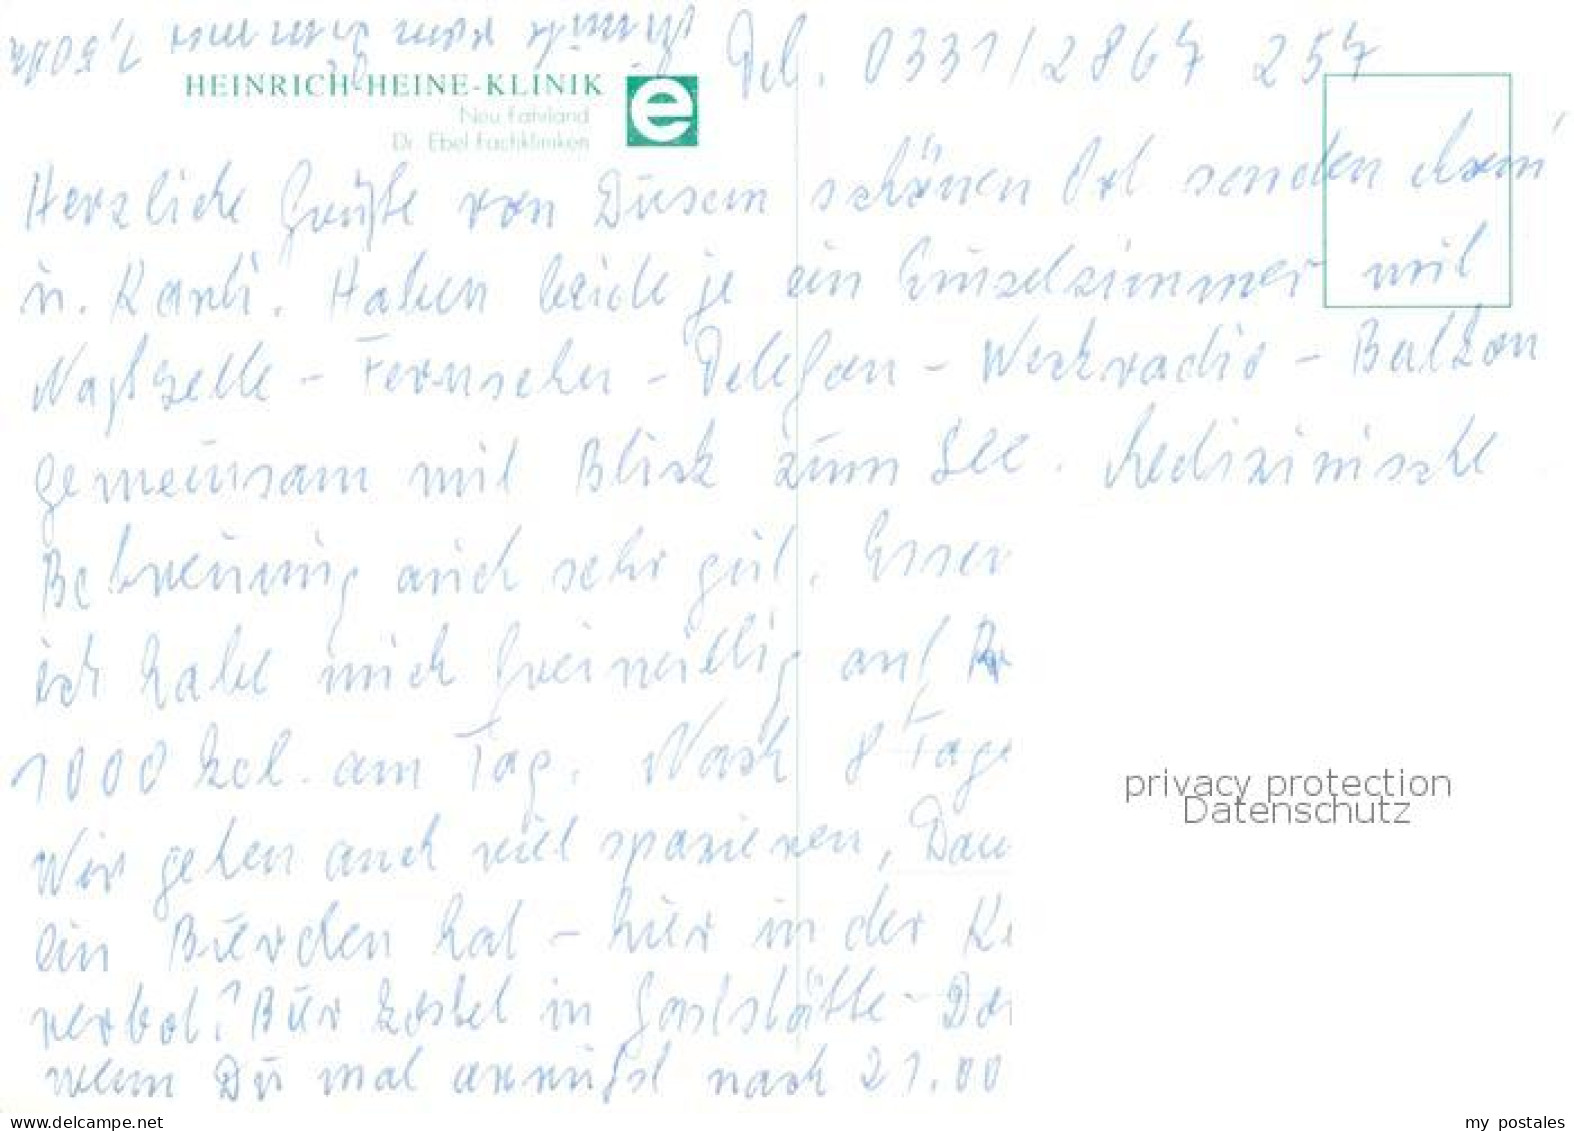 Tel. 0331/2867 257
HEINRICH-HEINE-KLINIK
Neu Fahrland
Dr. Ebel Fachkliniken
e
Herzliche Grüße von Diesem schönen Ort senden
u. Karli. Haben beide je ein Einzelzimmer mit
Naßzelle - Fernseher - Telefon - Weckradio - Balkon
gemeinsam mit Blick zum See. Medizinische
Betreuung auch sehr gut. Essen
ich habe mich freiwillig auf
1000 kcl. am Tag. Nach 8 Tage
Wir gehen auch viel spazieren,
ein Bierchen hat - hier in der
verbot! Bier kostet in Gaststätte
wenn Du mal anrufst nach 21.00
privacy protection
Datenschutz
www.delcampe.net
my_postales